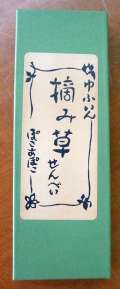 ゆふいん
摘み草
せんべい
ぽこあぽこ